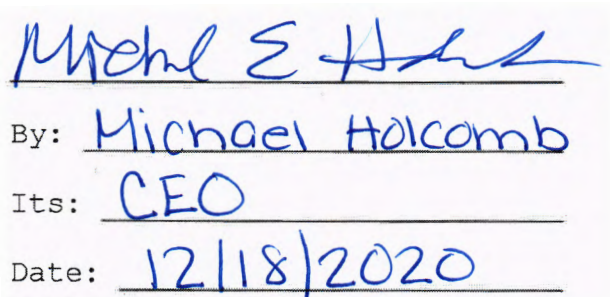 Michael E H
By: Michael Holcomb
Its: CEO
Date: 12/18/2020